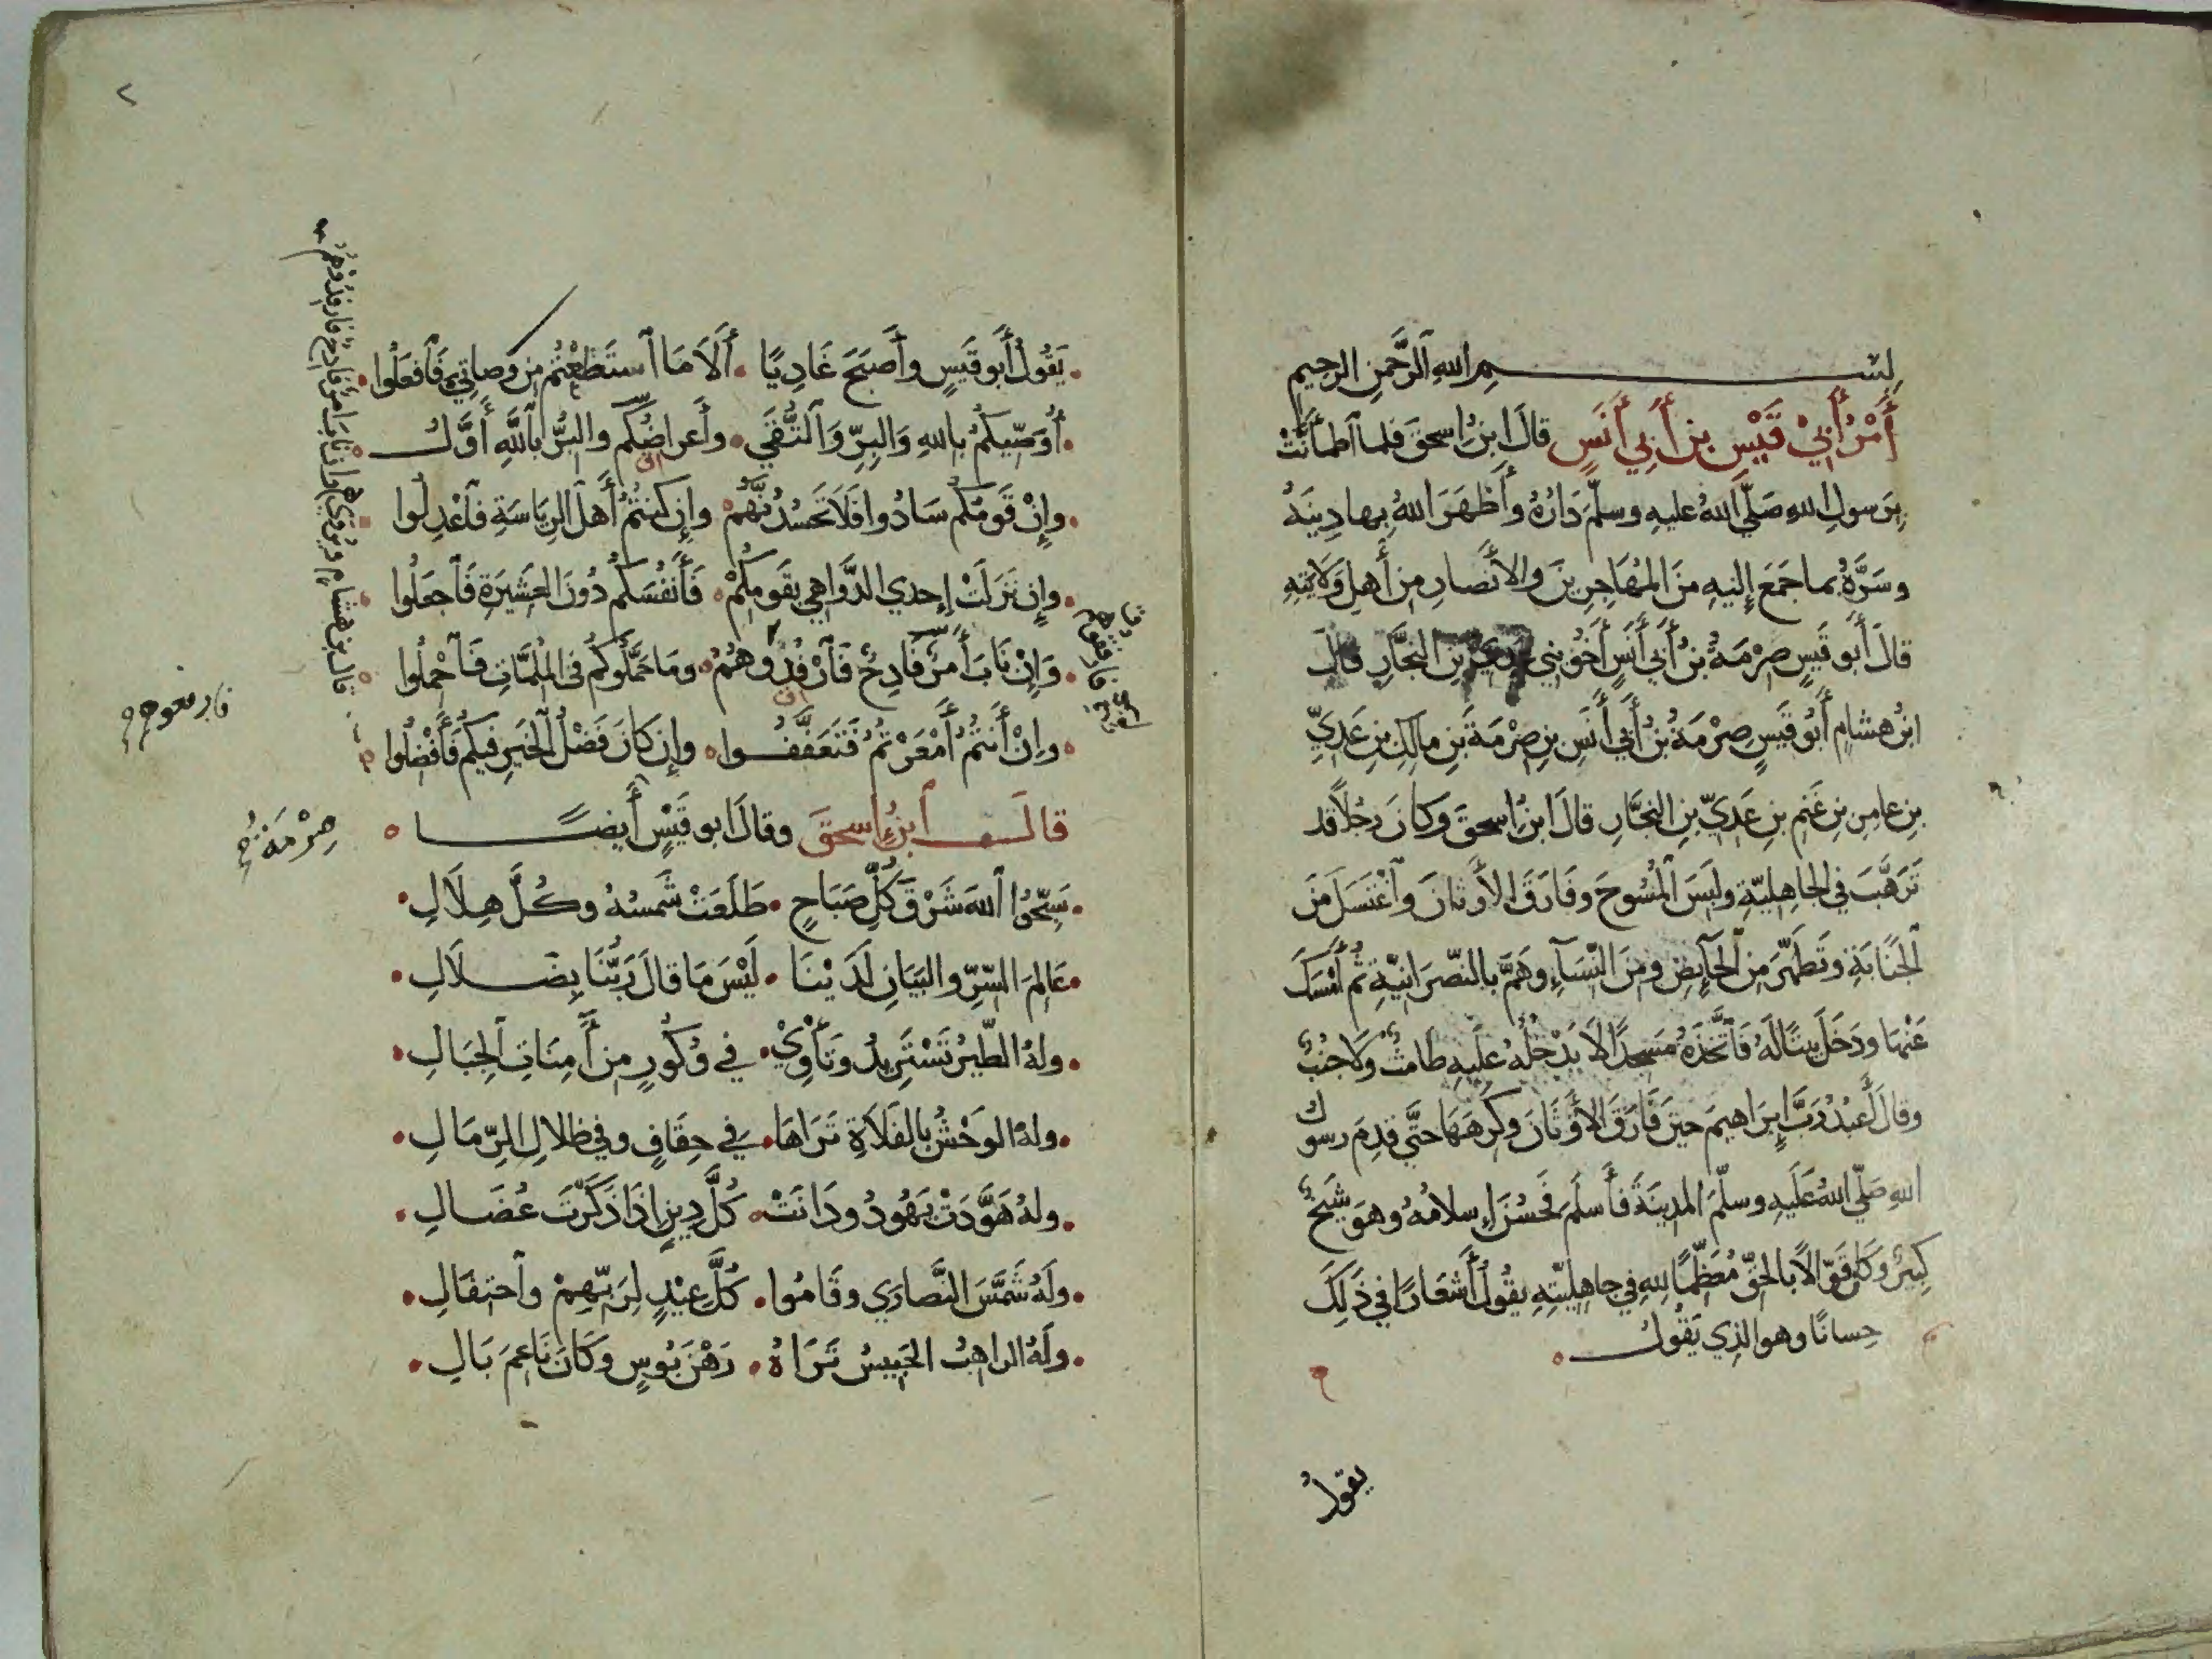 بسم الله الرحمن الرحيم
أَمْرُ أَبِيْ قَيْسِ بنِ أَبِي أَنَسٍ قالَ ابنُ اسحقَ فلما اَطمأَنَّتْ
بِرَسولِ اللهِ صَلَّى اللهُ عليهِ وسلَّمَ دَارُهُ وأَظهَرَ اللهُ بِها دِينَهُ
وسَرَّهُ بما جَمَعَ إِليهِ منَ المُهَاجِرِينَ والأَنصارِ مِن أَهلِ وَلَايَتِهِ
قالَ أَبو قَيسٍ صِرْمَةُ بنُ أَبي أَنَسٍ أَخُو بني عَدِيِّ بنِ النجَّارِ قالَ
ابنُ هشامٍ أَبُو قَيسٍ صِرْمَةُ بنُ أَبي أَنَسِ بنِ صِرْمَةَ بنِ مالِكِ بنِ عَدِيِّ
بنِ عامِرِ بنِ غَنمِ بنِ عَدِيِّ بنِ النجَّارِ قالَ ابنُ اسحقَ وكانَ رجُلاً قد
تَرَهَّبَ في الجاهِليّةِ ولَبِسَ المُسُوحَ وفَارَقَ الأَوثانَ واَغْتسَلَ مِنَ
اَلجنَابَةِ وتَطَهّرَ مِنَ اَلحَآئِضِ ومِنَ النّسَآءِ وهَمَّ بالنصّرَانيّةِ ثُمَّ أَمْسَكَ
عَنْهَا ودَخَلَ بيتًا لَهُ فَاَتَّخَذَهُ مَسجِدًا لَا يَدْخُلُهُ عَلَيهِ طامثٌ ولا جُنُبٌ
وقالَ أَعْبُدُ رَبَّ إِبرَاهيمَ حينَ فَارَقَ الأَوثَانَ وكَرِهَهَا حتَّى قدِمَ رسول
اللهِ صَلّى اللهُ عَلَيهِ وسلَّمَ المدينَةَ فأَسلَمَ فَحَسُنَ إِسلامُهُ وهوَ شَيخٌ
كبيرٌ وكانَ قوّالاً بالحقِّ مُعَظِّمًا للهِ في جاهِليّتِهِ يقُولُ أَشعَارًا في ذَلِكَ
حِسانًا وهو الذِي يَقُولُ
يقولُ
٢
يَقُولُ أَبو قَيسٍ وأَصبَحَ غَادِيًا . أَلَا مَا اَستَطَعْتُم مِن وَصاتِي فَاَفعَلُوا
أُوَصّيكُم باللهِ وَالبِرِّ وَاَلتُّقَى . وأَعراضِكُم والبِرُّ باَللَّهِ أَوَّلُ
وإِنْ قَومُكُم سَادُوا فَلَا تَحسُدُنَّهُم . وإِن كنتُمُ أَهلَ الرِيَاسَةِ فَاَعْدِلُوا
وإِن نَزَلَتْ إِحدي الدَّوَاهي بقَومِكُمْ . فَأَنفُسَكُم دُونَ العَشيرَةِ فَاَجعَلُوا
وَإِنْ نَابَ أَمرٌ فَادِحٌ فَاَرْفِدُوهُمُ . ومَا حَمَّلُوكُم في المُلِمَّاتِ فَاَحْمِلُوا
وإِنْ أَنتُمُ أَمْعَرْتُمُ فَتَعَفَّفُوا . وإِن كَانَ فَضْلُ اَلخَيرِ فيكُم فَأَفْضِلُوا
قالَ اَبنُ إِسحقَ وقالَ ابو قَيْسٍ أَيضًا
سَبّحُوا اَللهَ شَرْقَ كُلِّ صَبَاحٍ . طَلَعَتْ شَمسُهُ وكُلَّ هِلَالِ
عَالِمَ السّرِّ والبَيَانِ لَدَيْنَا . لَيْسَ مَا قالَ رَبُّنَا بِضَلَالِ
ولهُ الطّيرُ تَسْتَرِيدُ وَتَأْوِيْ . في وُكُورٍ مِن أَمِنَاتِ اَلجِبَالِ
ولهُ الوَحْشُ بِالفَلَاةِ تَرَاهَا . في حِقَافٍ وفي ظِلالِ الرِّمَالِ
ولهُ هَوَّدَتْ يَهُودُ ودَانَتْ . كُلَّ دِينٍ إِذَا ذَكَرْتَ عُضَالِ
ولَهُ شَمَّسَ النَّصارَي وقَامُوا . كُلَّ عِيْدٍ لِرَبّهِمْ واَحتِفَالِ
ولَهُ الراهبُ الحَبيسُ تَرَاهُ . رَهْنَ بُوسٍ وكَانَ نَاعِمَ بَالِ
قالَ بن هشامٍ ويُروَى وإِن نابَ أَمرٌ فادِحٌ فارفدُوهُمُ
صِرْمَة